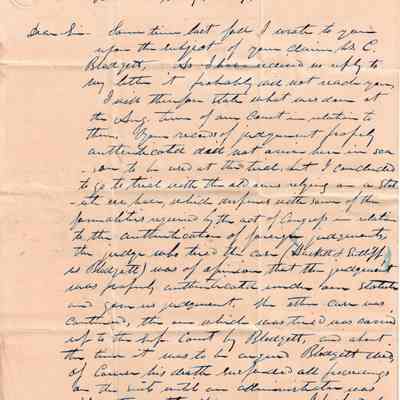 Dear Sir - Some time last fall I wrote to you
upon the subject of your claim vs C.
Blodgett, As I have received no reply to
my letter it probably did not reach you,
I will therefore state what was done at
the Aug. term of our Court in relation to
them. Your record of judgement properly
authenticated did not arrive here in sea
-son to be used at the trial, but I concluded
to go to trial with the old ones relying on a Stat
-ute here, which dispenses with some of the
formalities required by the act of Congress in relation
to the authentication of foreign judgments,
the judge who tried the case (Hackett &
vs Blodgett) was of opinion that the judgment
was properly authenticated under our Statute
and gave us judgment, the other case was
continued, the one which was tried was carried
up to the Sup. Court by Blodgett, and about
the time it was to be argued Blodgett died,
of course his death suspended all proceedings
in the suit until an administrator was